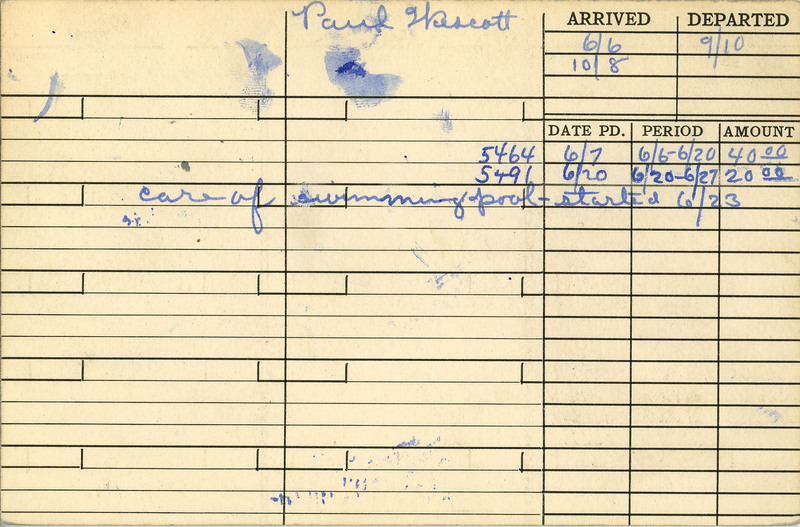 Paul Wescott
ARRIVED DEPARTED
6/6 9/10
10/8
DATE PD. PERIOD AMOUNT
5464 6/7 6/6-6/20 40 00
5491 6/20 6/20-6/27 20 00
care of swimming pool - started 6/23